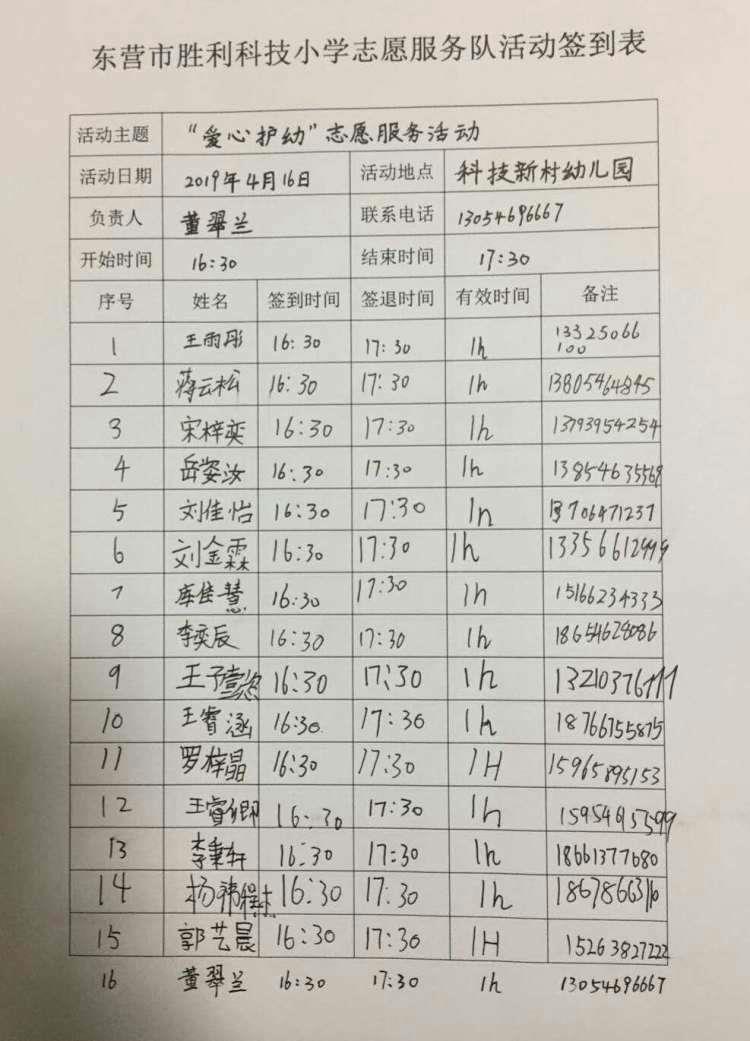 东营市胜利科技小学志愿服务队活动签到表
活动主题 “爱心护幼”志愿服务活动
活动日期 2019年4月16日 活动地点 科技新村幼儿园
负责人 董翠兰 联系电话 13054696667
开始时间 16:30 结束时间 17:30
序号 姓名 签到时间 签退时间 有效时间 备注
1 王雨彤 16:30 17:30 1h 13325066
100
2 蒋云松 16:30 17:30 1h 13805464845
3 宋梓奕 16:30 17:30 1h 13793954254
4 岳姿汝 16:30 17:30 1h 13854635569
5 刘佳怡 16:30 17:30 1h 13706471237
6 刘金霖 16:30 17:30 1h 13356612999
7 库佳慧 16:30 17:30 1h 15166234333
8 李奕辰 16:30 17:30 1h 18654628086
9 王予 16:30 17:30 1h
10 王睿涵 16:30 17:30 1h 18766755875
11 罗梓晶 16:30 17:30 1H 15965895153
12 王睿卿 16:30 17:30 1h
13 李秉轩 16:30 17:30 1h 18661377680
14 杨 16:30 17:30 1h
15 郭艺晨 16:30 17:30 1H 15263827222
16 董翠兰 16:30 17:30 1h 13054696667